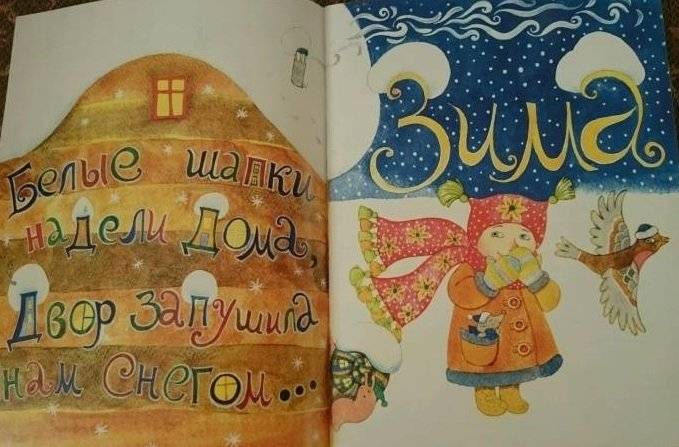 Белые шапки
надели Дома,
Двор запушила
нам Снегом...
Зима